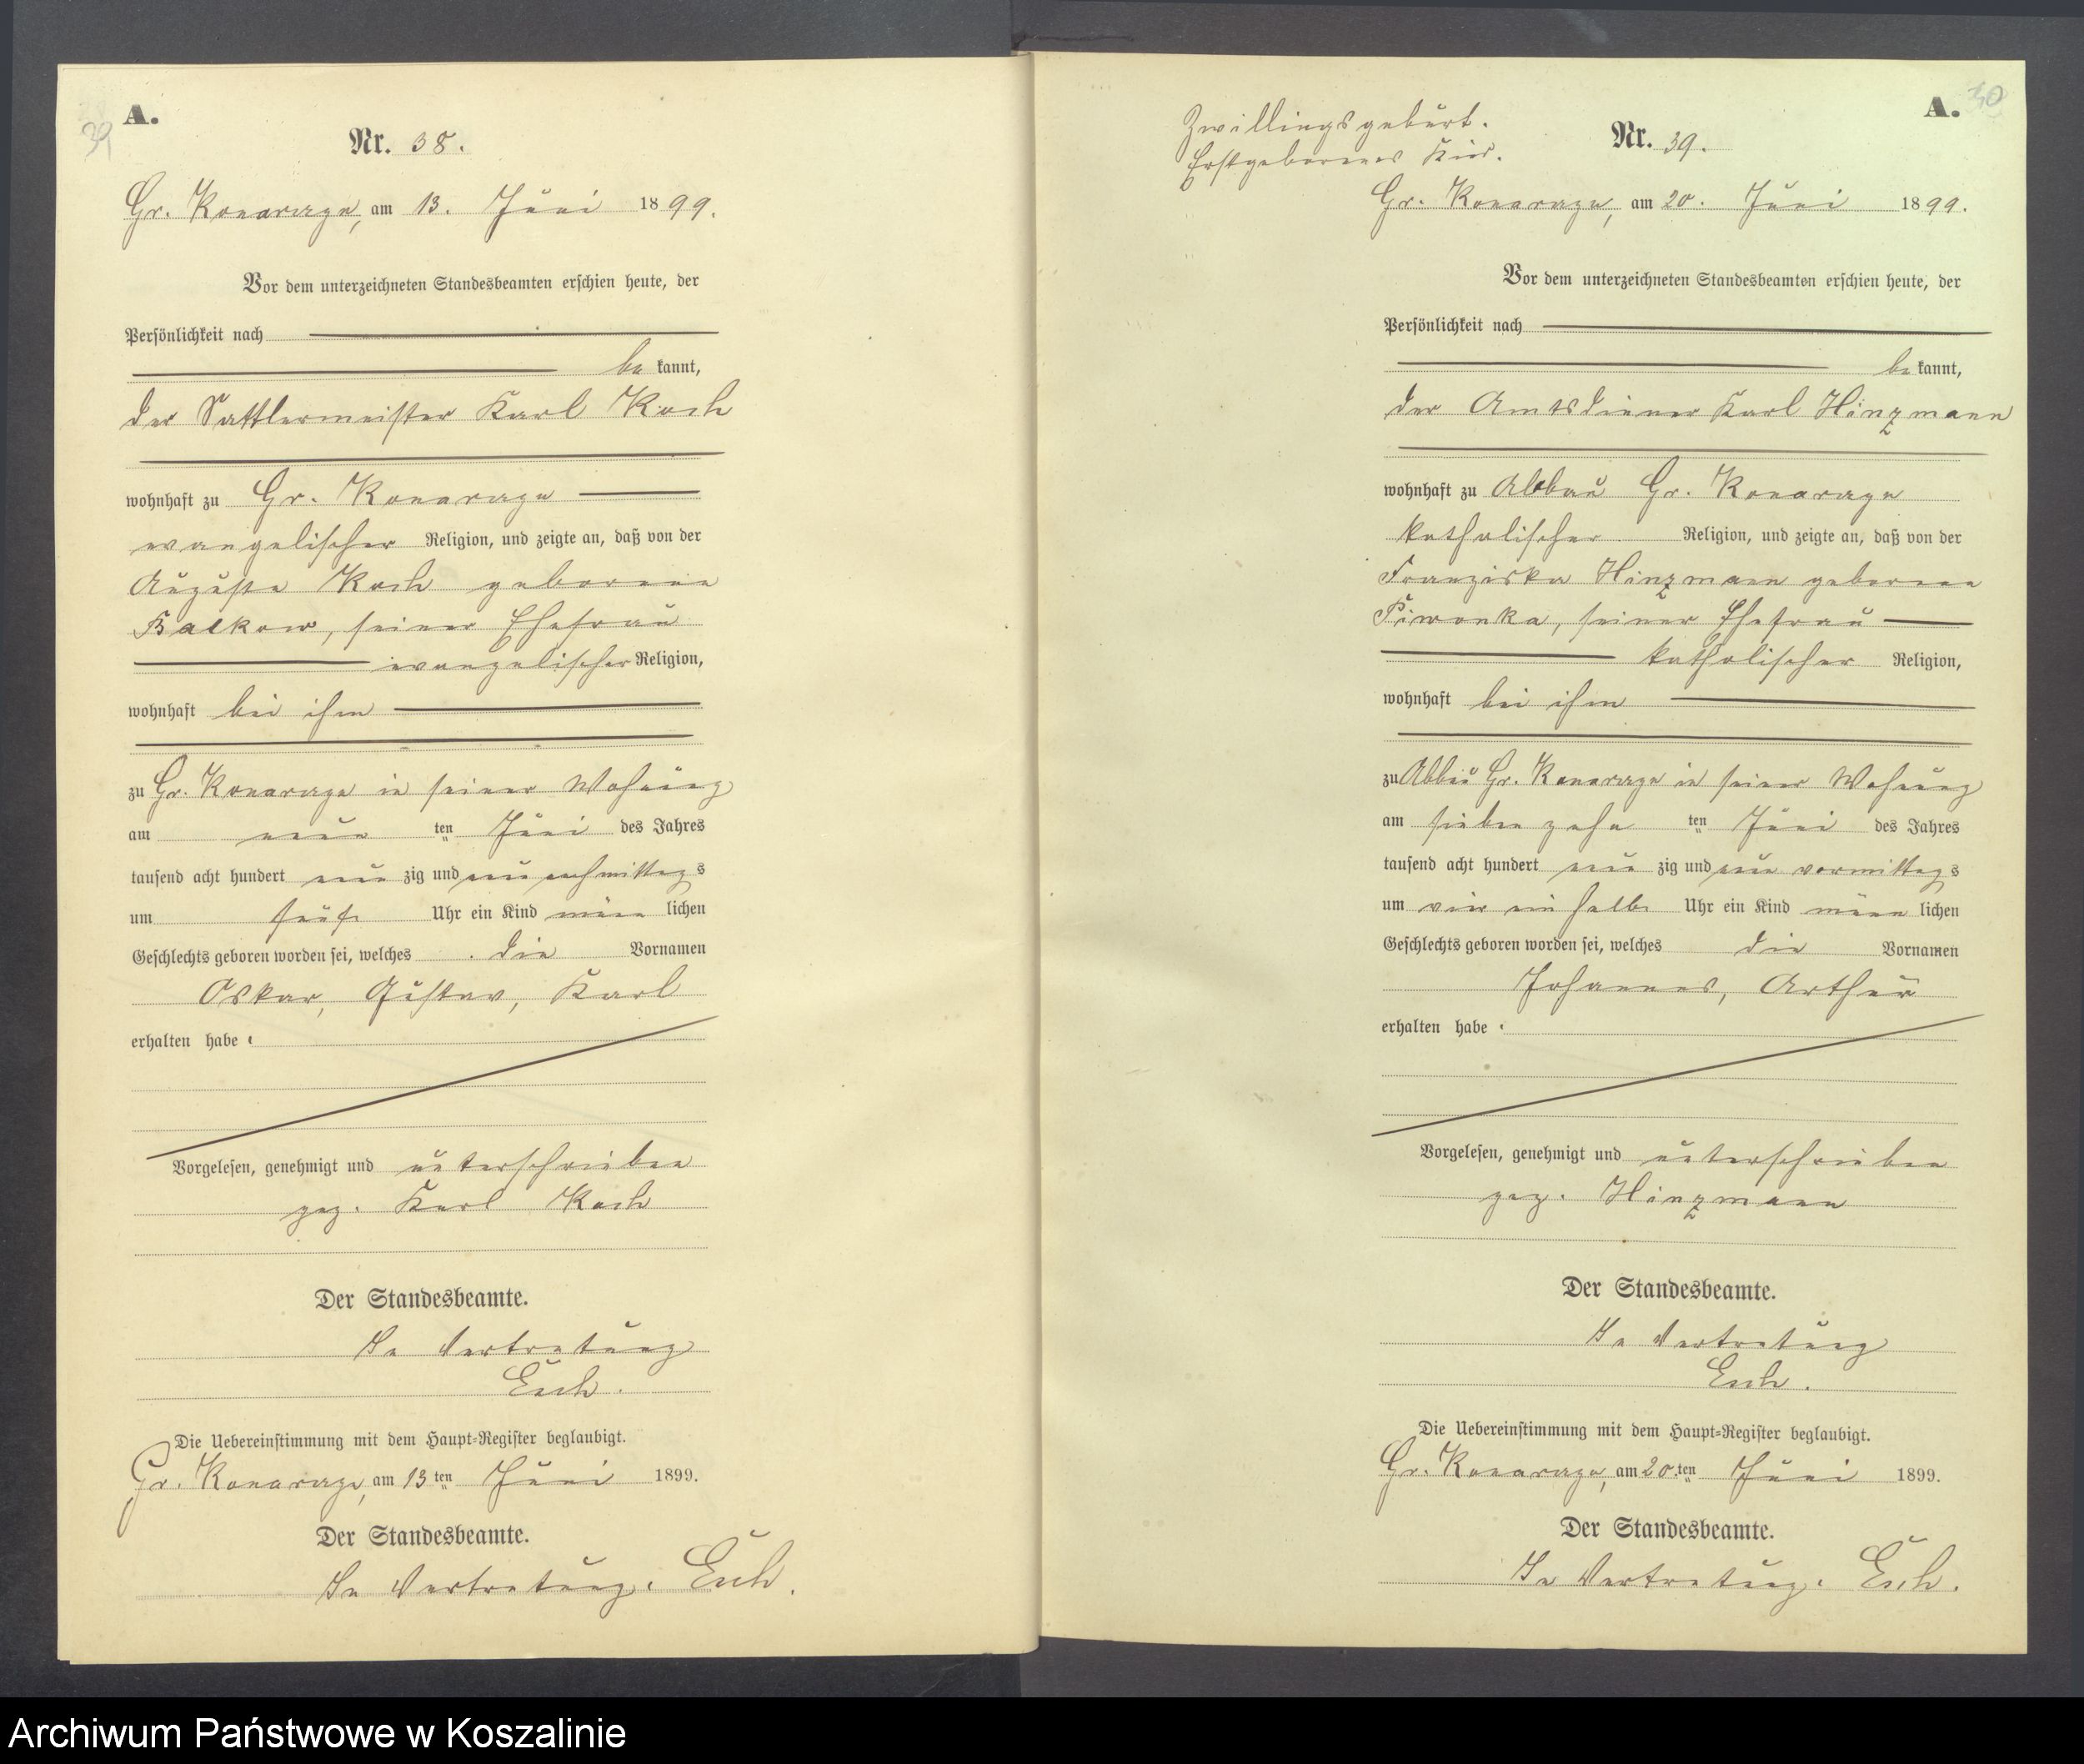 A.
39
Nr. 38.
Gr. Konarczyn, am 13. Juni 1899.
Vor dem unterzeichneten Standesbeamten erschien heute, der
Persönlichkeit nach
be kannt,
der Sattlermeister Karl Koch
wohnhaft zu Gr. Konarczyn
evangelischer Religion, und zeigte an, daß von der
Auguste Koch geborene
Balkow, seiner Ehefrau
evangelischer Religion,
wohnhaft bei ihm
zu Gr. Konarczyn in seiner Wohnung
am neun ten Juni des Jahres
tausend acht hundert neun zig und neun nachmittags
um fünf Uhr ein Kind männ lichen
Geschlechts geboren worden sei, welches die Vornamen
Oskar, Gustav, Karl
erhalten habe.
Vorgelesen, genehmigt und unterschrieben
gez. Karl Koch
Der Standesbeamte.
In Vertretung
Esch.
Die Uebereinstimmung mit dem Haupt-Register beglaubigt.
Gr. Konarczyn, am 13 ten Juni 1899.
Der Standesbeamte.
In Vertretung. Esch.
A. 30
Zwillingsgeburt.
Erstgeborenes Kind.
Nr. 39.
Gr. Konarczyn, am 20. Juni 1899.
Vor dem unterzeichneten Standesbeamten erschien heute, der
Persönlichkeit nach
be kannt,
der Amtsdiener Karl Hinzmann
wohnhaft zu Abbau Gr. Konarczyn
katholischer Religion, und zeigte an, daß von der
Franziska Hinzmann geborene
Piwonka, seiner Ehefrau
katholischer Religion,
wohnhaft bei ihm
zu Abbau Gr. Konarczyn in seiner Wohnung
am siebenzehn ten Juni des Jahres
tausend acht hundert neun zig und neun vormittags
um vier ein halb Uhr ein Kind männ lichen
Geschlechts geboren worden sei, welches die Vornamen
Johannes, Arthur
erhalten habe.
Vorgelesen, genehmigt und unterschrieben
gez. Hinzmann
Der Standesbeamte.
In Vertretung
Esch.
Die Uebereinstimmung mit dem Haupt-Register beglaubigt.
Gr. Konarczyn, am 20. ten Juni 1899.
Der Standesbeamte.
In Vertretung. Esch.
Archiwum Państwowe w Koszalinie